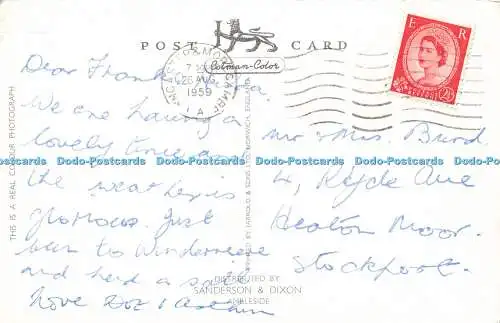 POST CARD
Colman-Color
26 AUG
1959
E R
2½
Dear Frank
We are having a
lovely time and
the weather is
glorious. Just
been to Windermere
and had a sail
Love Dot & Arthur
Mr & Mrs. Burd.
4, Ryde Ave
Heaton Moor.
Stockport.
THIS IS A REAL COLOUR PHOTOGRAPH
PRINTED BY JARROLD & SONS LTD. NORWICH, ENGLAND
DISTRIBUTED BY
SANDERSON & DIXON
AMBLESIDE
Dodo-Postcards Dodo-Postcards Dodo-Postcards Dodo-Postcards Dodo-Postcards Dodo-Postcards